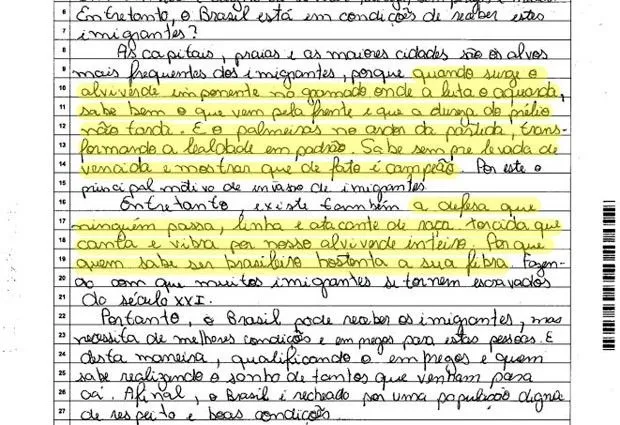 Entretanto, o Brasil está em condições de receber estes
imigrantes?
As capitais, praias e as maiores cidades são os alvos
mais frequentes dos imigrantes, porque quando surge o
alviverde imponente no gramado onde a luta o aguarda,
sabe bem o que vem pela frente e que a dureza do prélio
não tarda. E o palmeiras no ardor da partida, trans-
formando a lealdade em padrão. Sabe sempre levada de
vencida e mostrar que de fato é campeão. Por este o
principal motivo de invasão de imigantes.
Entretanto, existe também a defesa que
ninguém passa, linha e atacante de raça. torcida que
canta e vibra por nosso alviverde inteiro. Por que
quem sabe ser brasileiro hostenta a sua fibra. Fazen-
do com que muitos imigrantes se tornem escravados
do século XXI.
Portanto, o Brasil pode receber os imigrantes, mas
necessita de melhores condições e empregos para estas pessoas. E
desta maneira, qualificando o empregos e quem
sabe realizando o sonho de tantos que venham para
cá. Afinal, o Brasil é recheado por uma população digna
de respeito e boas condições.